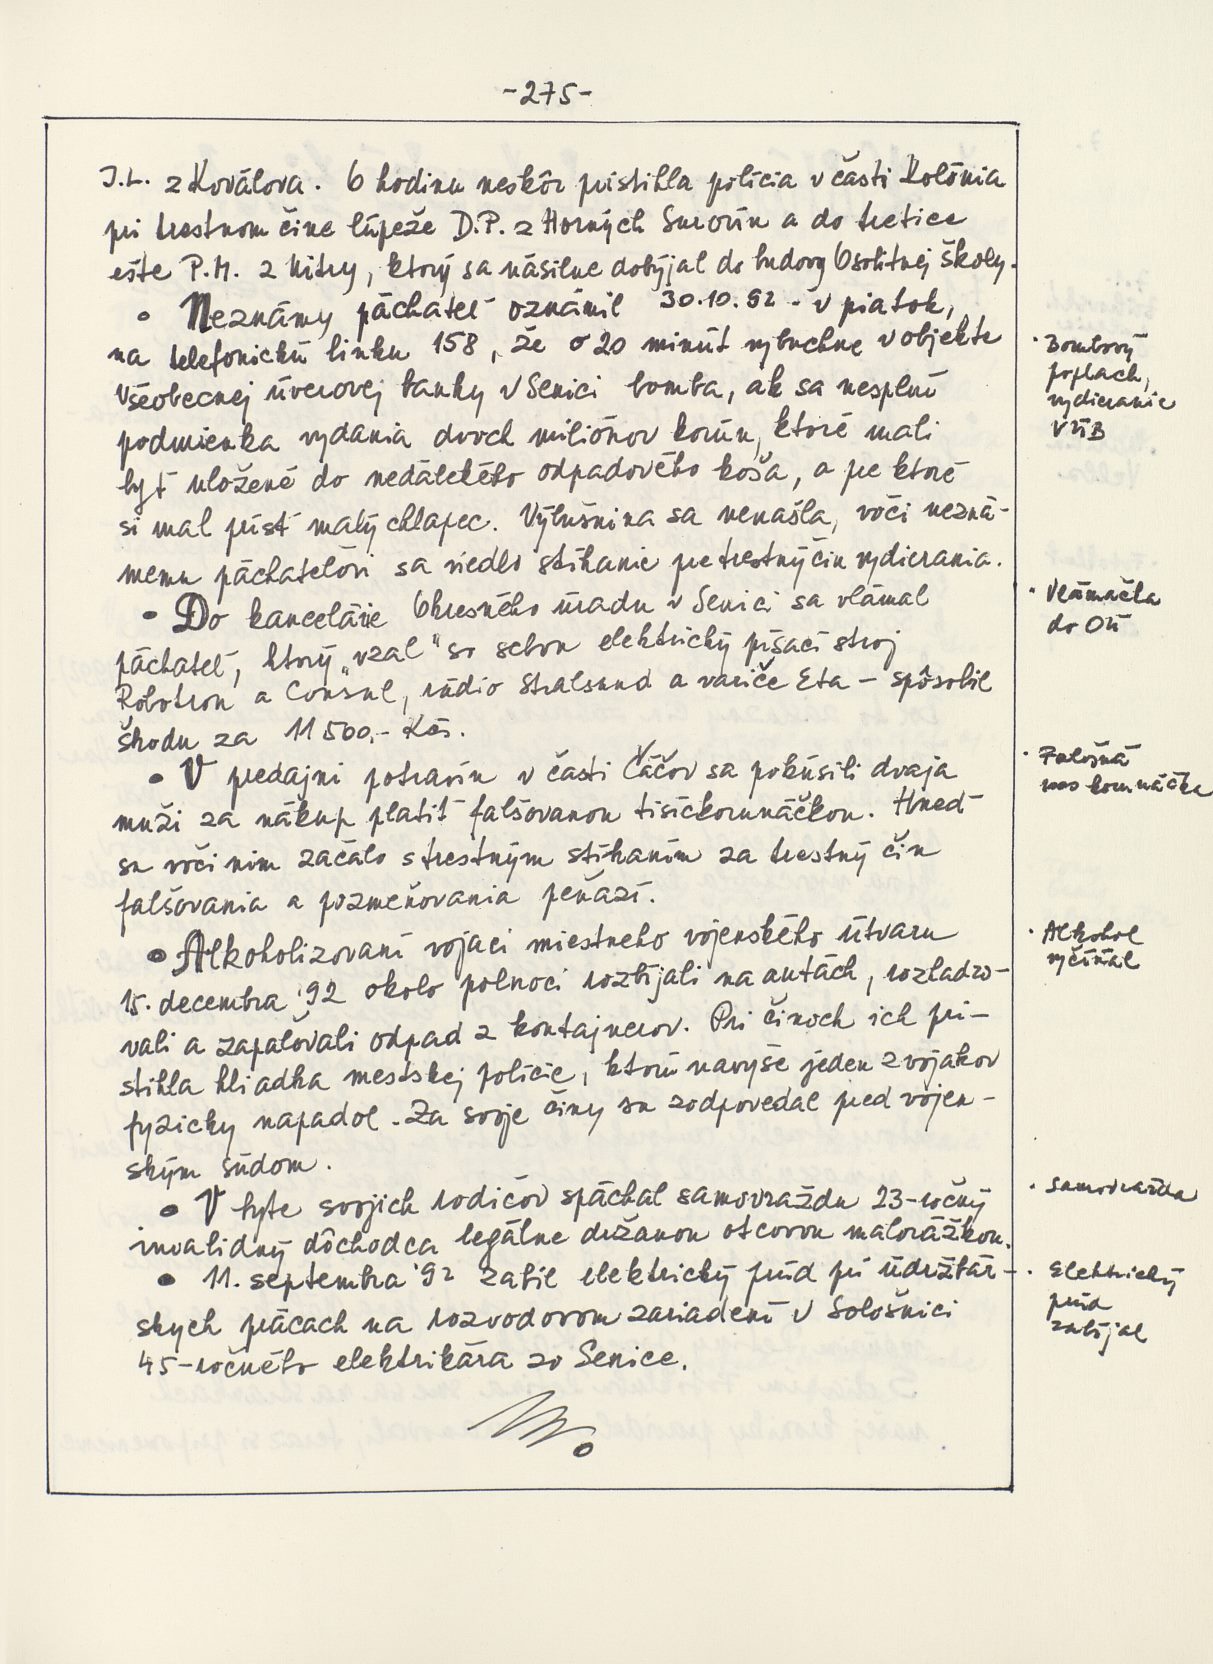 -275-
J.L. z Koválova. O hodinu neskôr pristihla polícia v časti Kolónia
pri trestnom čine lúpeže D.P. z Horných Surovín a do tretice
ešte P.M. z Nitry, ktorý sa násilne dobýjal do budovy Osobitnej školy.
• Neznámy páchateľ oznámil 30.10.92 - v piatok,
na telefonickú linku 158, že o 20 minút vybuchne v objekte
Všeobecnej úverovej banky v Senici bomba, ak sa nesplní
podmienka vydania dvoch miliónov korún, ktoré mali
byť uložené do neďalekého odpadového koša, a pre ktoré
si mal prísť malý chlapec. Výbušnina sa nenašla, voči nezná-
memu páchateľovi sa viedlo stíhanie pre trestný čin vydierania.
• Do kancelárie Okresného úradu v Senici sa vlámal
páchateľ, ktorý „vzal" so sebou elektrický písací stroj
Robotron a Consul, rádio Stralsund a variče Eta - spôsobil
škodu za 11 500,- Kčs.
• V predajni potravín v časti Čáčov sa pokúsili dvaja
muži za nákup platiť falšovanou tisíckorunáčkou. Hneď
sa voči nim začalo s trestným stíhaním za trestný čin
falšovania a pozmeňovania peňazí.
• Alkoholizovaní vojaci miestneho vojenského útvaru
15. decembra '92 okolo polnoci rozbíjali na autách, rozhadzo-
vali a zapaľovali odpad z kontajnerov. Pri činoch ich pri-
stihla hliadka mestskej polície, ktorú navyše jeden z vojakov
fyzicky napadol. Za svoje činy sa zodpovedal pred vojen-
ským súdom.
• V byte svojich rodičov spáchal samovraždu 23-ročný
invalidný dôchodca legálne držanou otcovou malorážkou.
• 11. septembra '92 zabil elektrický prúd pri údržbár-
skych prácach na rozvodovom zariadení v Sološnici
45-ročného elektrikára zo Senice.
· Bombový
poplach,
vydieranie
VÚB
· Vlámačka
do OÚ
· Falošná
korunáčka
· Alkohol
vyčíňal
· Samovražda
· Elektrický
prúd
zabíjal